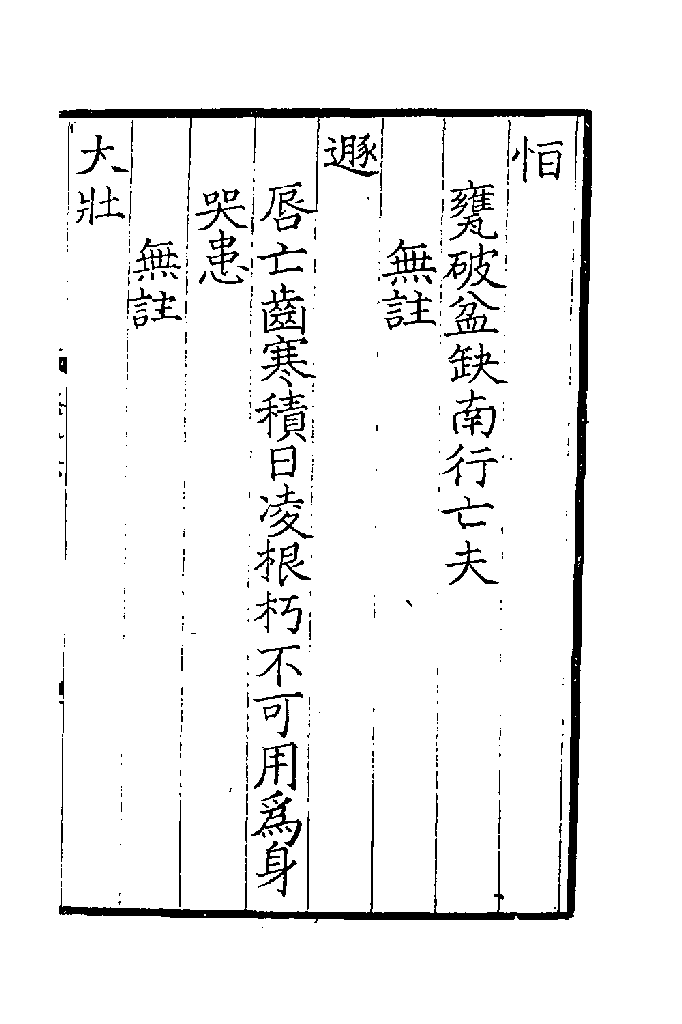 恒
甕破盆缺南行亡夫
無註
遯
唇亡齒寒積日凌根朽不可用為身
哭患
無註
大壯